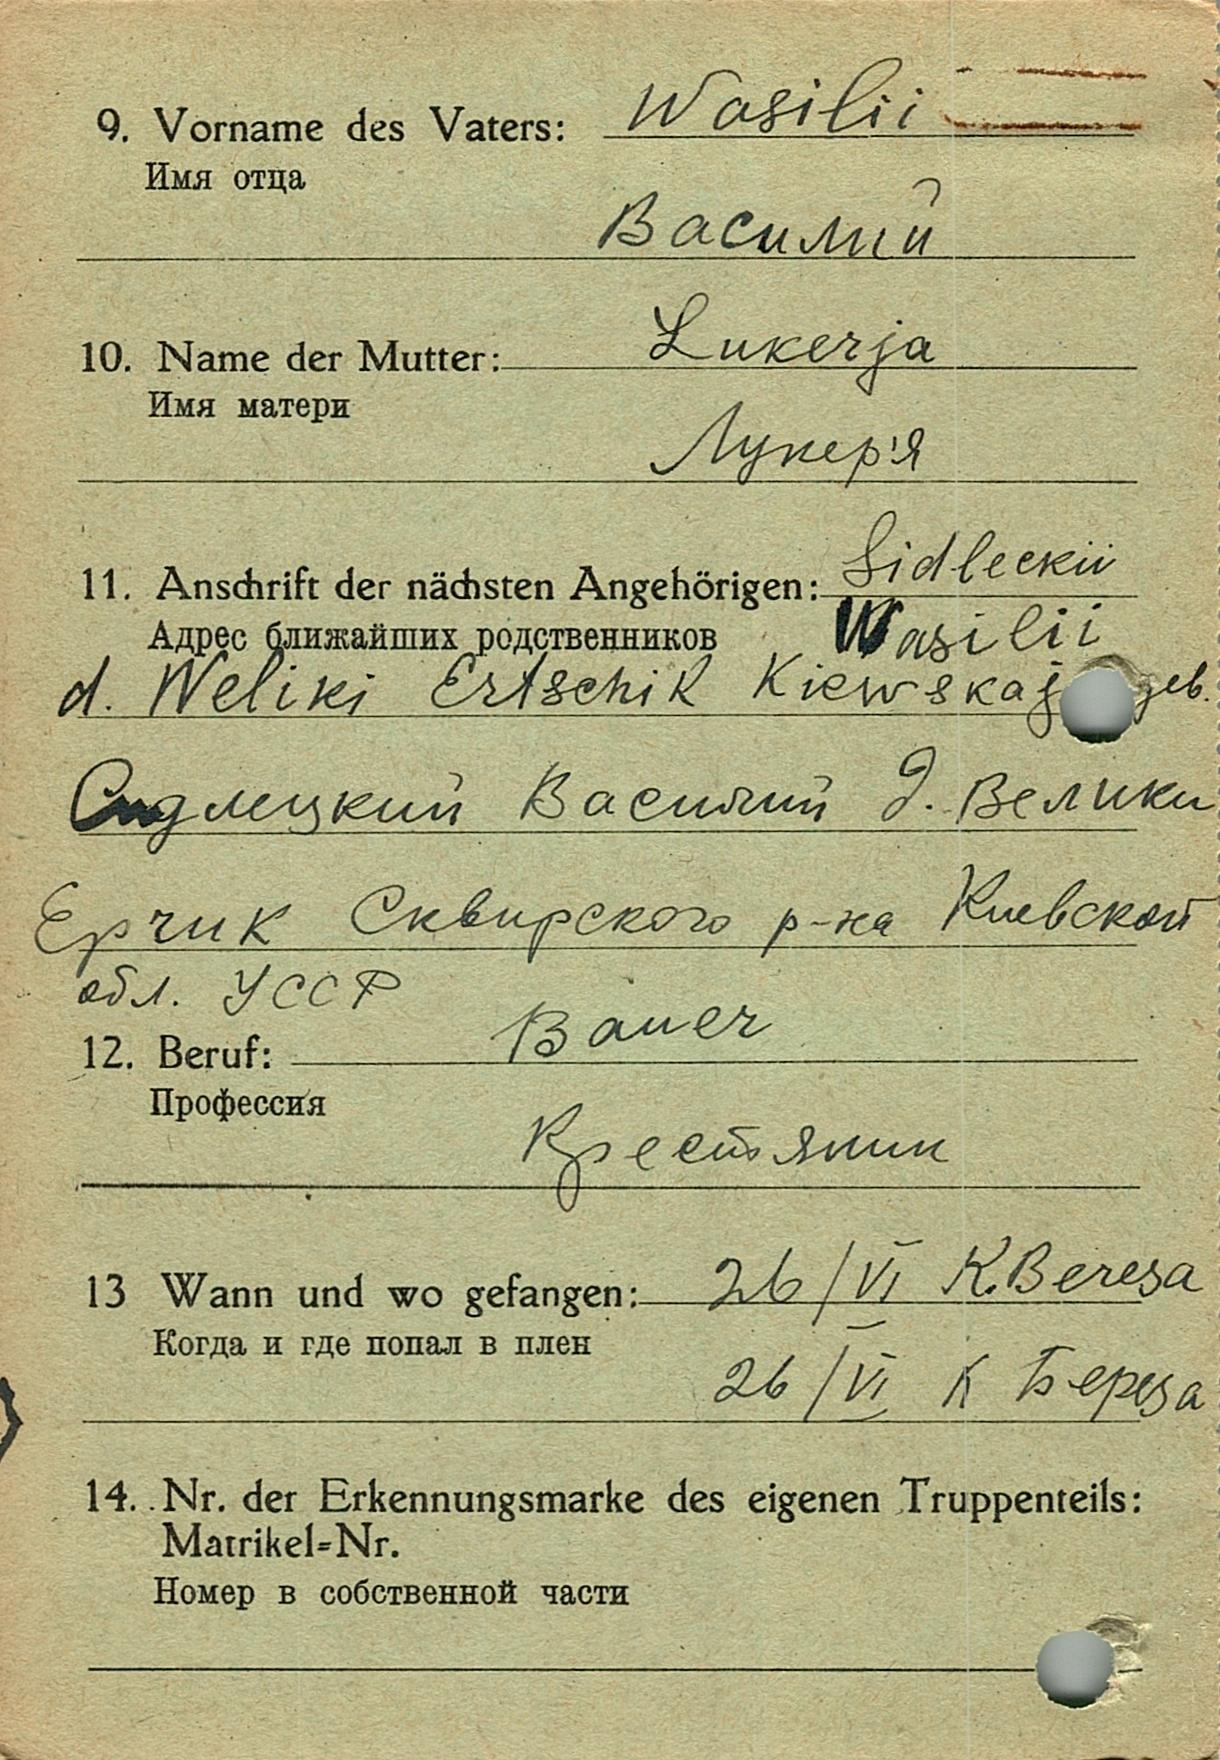 9. Vorname des Vaters: Wasilii
Имя отца
Василий
10. Name der Mutter: Lukerja
Имя матери
Лукер'я
11. Anschrift der nächsten Angehörigen: Sidleckii
Адрес ближайших родственников Wasilii
d. Weliki Ertschik Kiewskaj
Сидлецкий Василий д. Велики
Ерчик Сквирского р-на Киевской
обл. УССР
12. Beruf: Bauer
Профессия
Крестянин
13 Wann und wo gefangen: 26/VI K. Beresa
Когда и где попал в плен
26/VI К Береза
14. Nr. der Erkennungsmarke des eigenen Truppenteils:
Matrikel=Nr.
Номер в собственной части